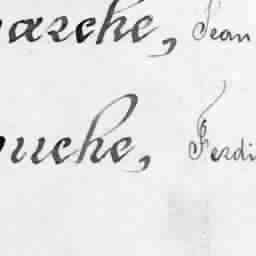 arche, Jean
uche, Ferdi